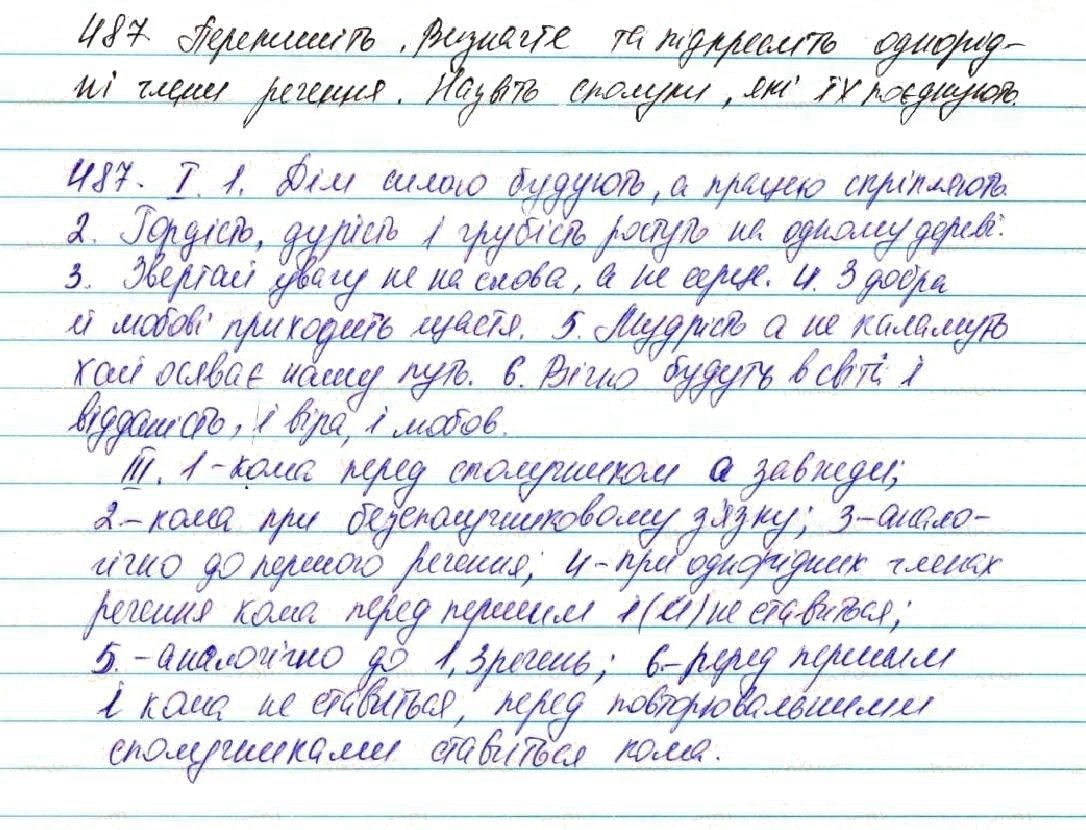 487. Перепишіть. Визначте та підкресліть однорід-
ні члени речення. Назвіть сполуки, які їх поєднують.
487. I. 1. Дім силою будують, а працею скріпляють.
2. Гордість, дурість і грубість ростуть на одному дереві.
3. Звертай увагу не на слова, а не серце. 4. З добра
й любові приходить щастя. 5. Мудрість а не каламуть
хай осяває нашу путь. 6. Вічно будуть в світі і
відданість, і віра, і любов.
III. 1 - кома перед сполучником а завжди;
2 - кома при безсполучниковому зв'язку; 3 - анало-
гічно до першого речення; 4 - при однорідних членах
речення кома перед першим і (й) не ставиться;
5. - аналогічно до 1, 3 речень; 6. - перед першим
і кома не ставиться, перед повторювальними
сполучниками ставиться кома.